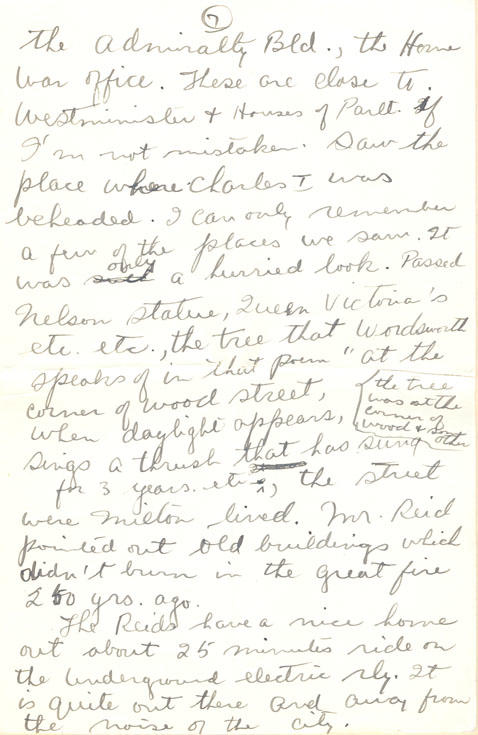 7
the Admiralty Bld., the Home
War office. These are close to
Westminister & Houses of Parlt. If
I'm not mistaken. Saw the
place where Charles I was
beheaded. I can only remember
a few of the places we saw. It
was only a hurried look. Passed
Nelson statue, Queen Victoria's
etc. etc., the tree that Wordsworth
speaks of in that poem "at the
corner of wood street,
when daylight appears,
{the tree
was at the
corner of
wood & some
other
sings a thrush that has sung
for 3 years. etc.", the street
were Milton lived. Mr. Reid
pointed out old buildings which
didn't burn in the great fire
250 yrs. ago.
The Reids have a nice home
out about 25 minutes ride on
the Underground electric rly. It
is quite out there and away from
the noise of the city.